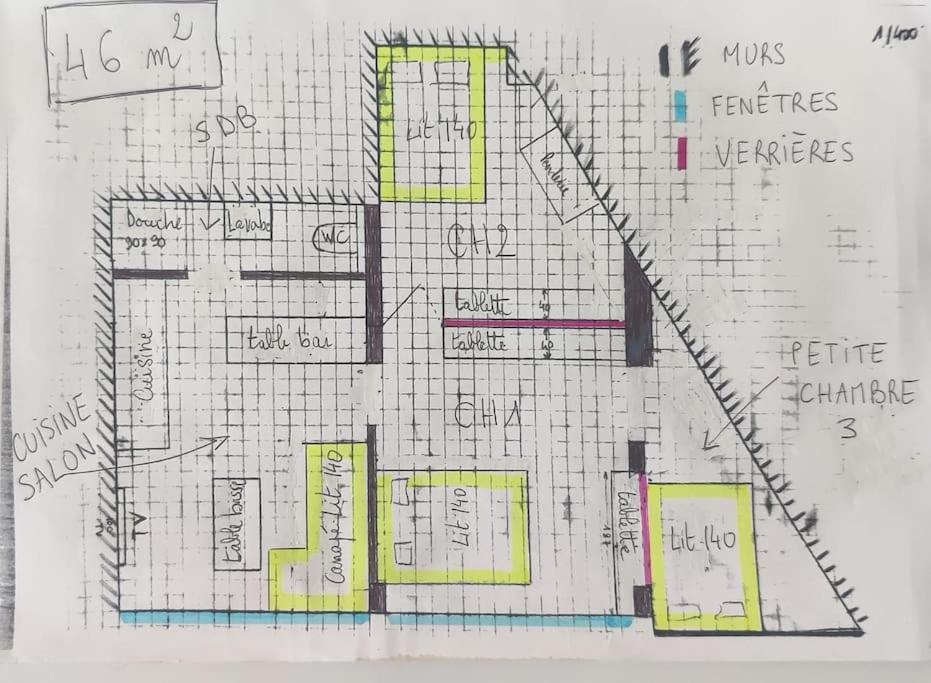 46 m²
1/400
MURS
FENÊTRES
VERRIÈRES
SDB
Lit 140
Penderie
Douche
90x90
Lavabo
WC
CH2
tablette 40
tablette 40
table bar
Cuisine
PETITE
CHAMBRE
3
CH1
CUISINE
SALON
TV
table basse
Canapé-lit 140
Lit 140
tablette
Lit 140